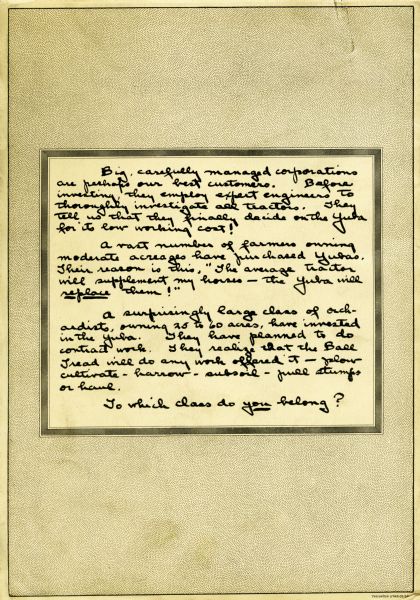 Big, carefully managed corporations
are perhaps our best customers. Before
investing they employ expert engineers to
thoroughly investigate all tractors. They
tell us that they finally decide on the Yuba
for its low working cost!
A vast number of farmers owning
moderate acreages have purchased Yubas.
Their reason is this, "The average tractor
will supplement my horses — the Yuba will
replace them!"
A surprisingly large class of orch-
ardists, owning 25 to 60 acres, have invested
in the Yuba. They have planned to do
contract work. They realize that the Ball
Tread will do any work offered it — plow
cultivate - harrow - subsoil - pull stumps
or haul.
To which class do you belong?